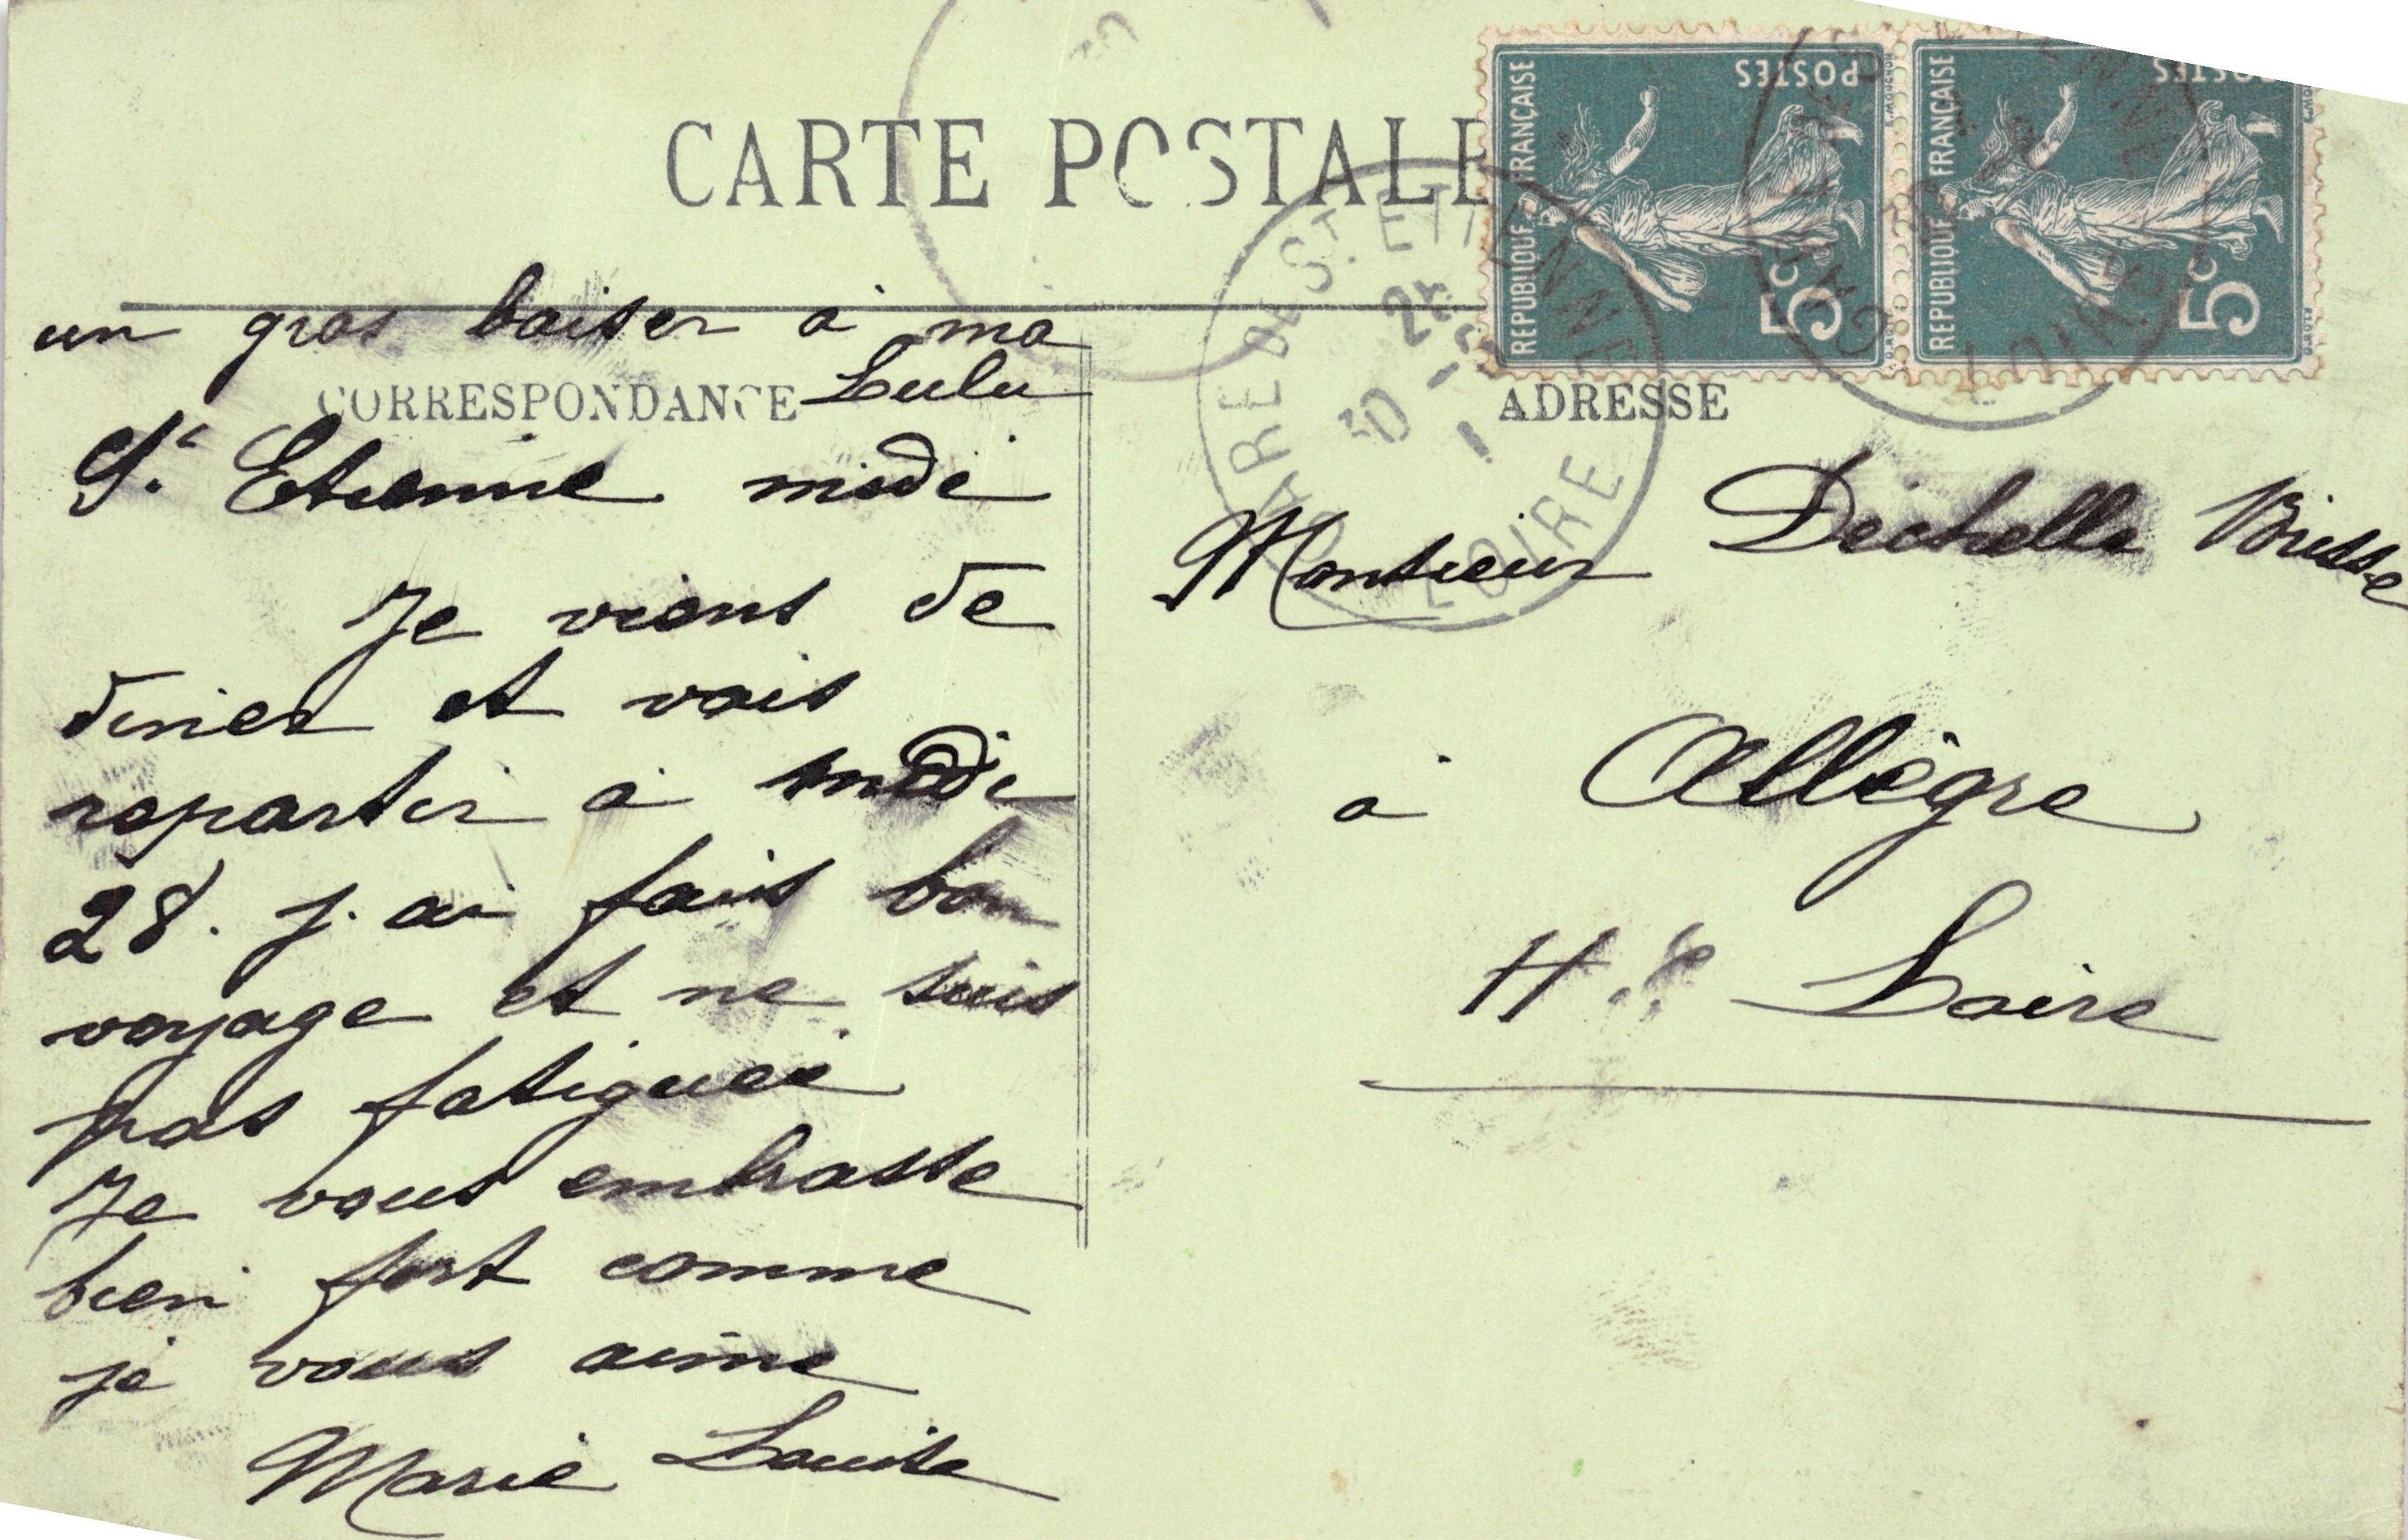 CARTE POSTALE
un gros baiser à ma
Lulu
CORRESPONDANCE
St Etienne midi
Je viens de
diner et vais
repartir à midi
28. j. ai fais bon
voyage et ne suis
pas fatiguée
Je vous embrasse
bien fort comme
je vous aime
Marie Louise
REPUBLIQUE FRANÇAISE
POSTES
5c
REPUBLIQUE FRANÇAISE
POSTES
5c
GARE DE ST. ETIENNE
LOIRE
ADRESSE
Monsieur Dechelle
à Allègre
Hte Loire